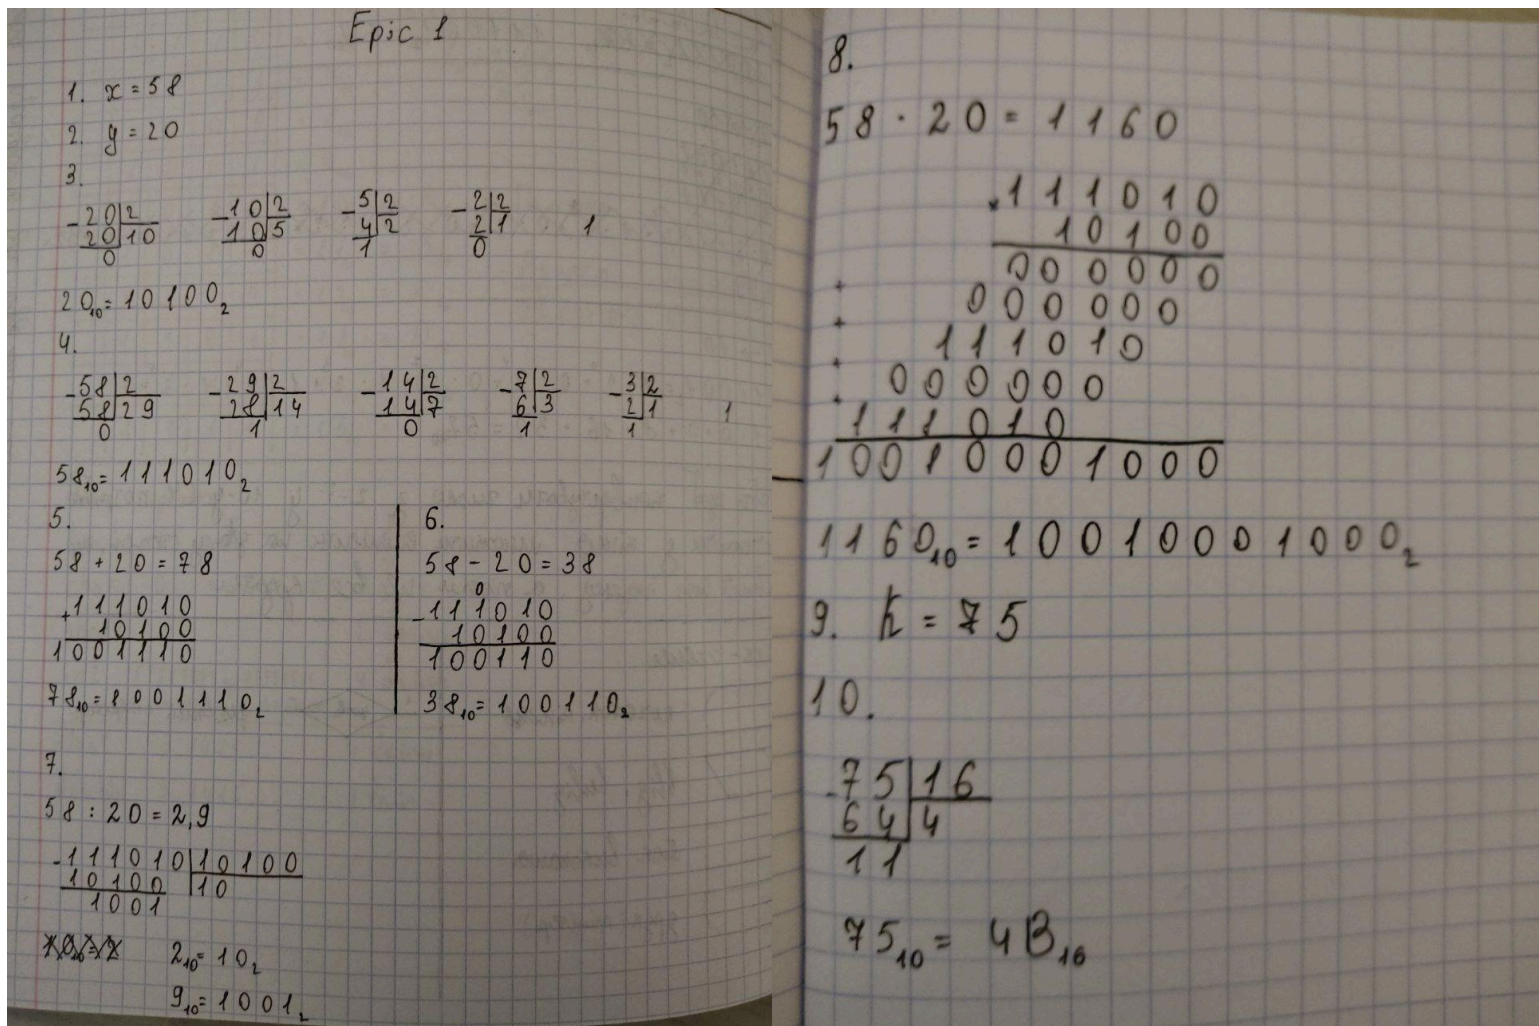 Epic 1
1. x = 58
2. y = 20
3.
-20|2 -10|2 -5|2 -2|2 1
20|10 10|5 4|2 2|1
0 0 1 0
20₁₀ = 10100₂
4.
-58|2 -29|2 -14|2 -7|2 -3|2 1
58|29 28|14 14|7 6|3 2|1
0 1 0 1 1
58₁₀ = 111010₂
5.
58 + 20 = 78
+111010
10100
1001110
78₁₀ = 1001110₂
6.
58 - 20 = 38
0
-111010
10100
100110
38₁₀ = 100110₂
7.
58 : 20 = 2,9
-111010|10100
10100|10
1001
2₁₀ = 10₂
9₁₀ = 1001₂
8.
58 · 20 = 1160
·111010
10100
000000
+ 000000
+ 111010
+ 000000
+ 111010
10010001000
1160₁₀ = 10010001000₂
9. K = 75
10.
-75|16
64|4
11
75₁₀ = 4B₁₆